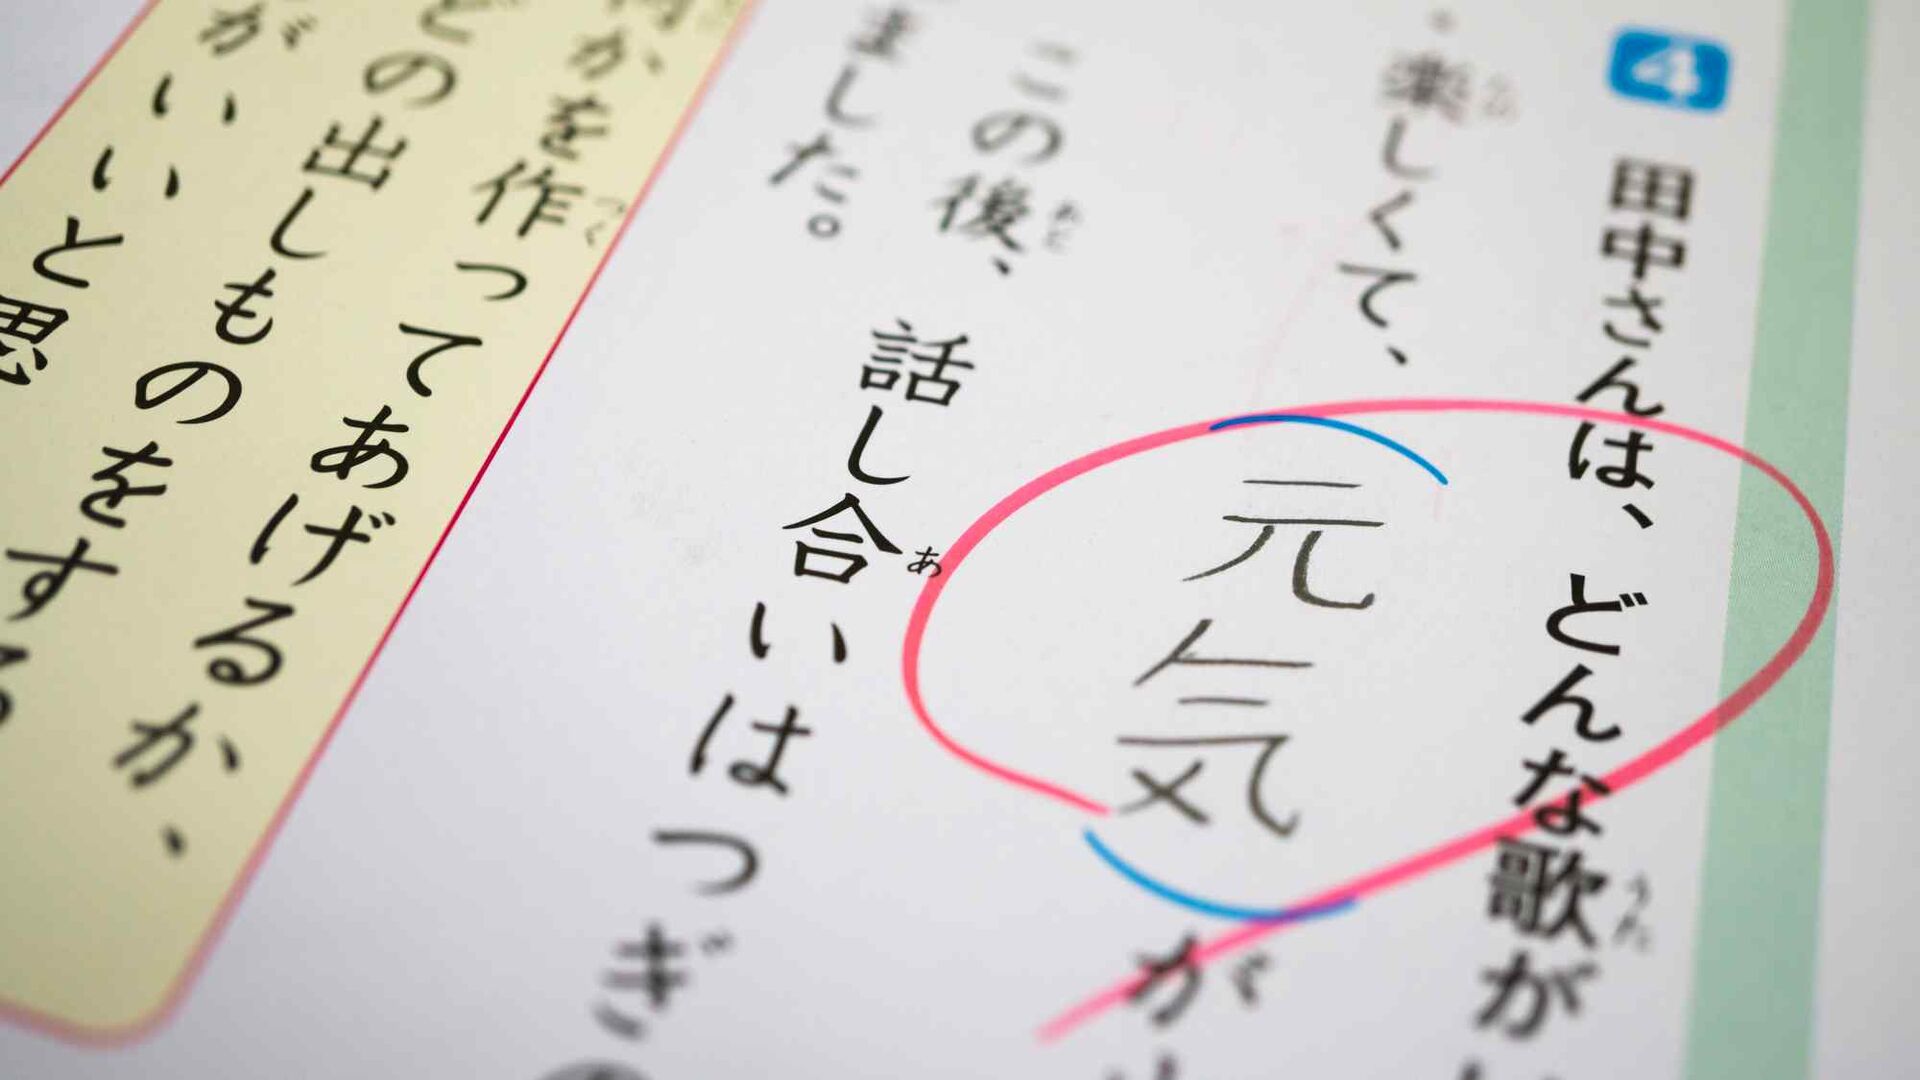 4 田中さんは、どんな歌が
うた
・楽しくて、元気が
この後、話し合いはつぎの
あと
あ
ました。
かを作ってあげるか、
つく
どの出しものをする
がいいと思